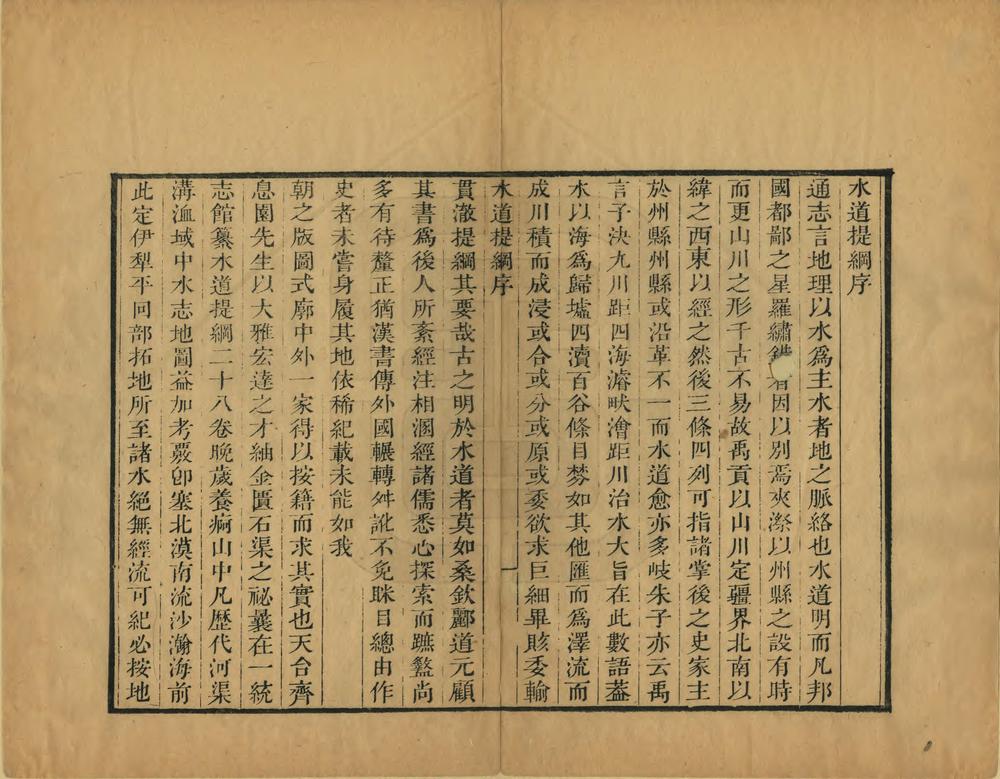 水道提綱序
通志言地理以水爲主水者地之脈絡也水道明而凡邦
國都鄙之星羅繡錯者因以別焉夾漈以州縣之設有時
而更山川之形千古不易故禹貢以山川定疆界北南以
緯之西東以經之然後三條四列可指諸掌後之史家主
於州縣州縣或沿革不一而水道愈亦多岐朱子亦云禹
言予決九川距四海濬畎澮距川治水大旨在此數語葢
水以海爲歸墟四瀆百谷條目棼如其他匯而爲澤流而
成川積而成浸或合或分或原或委欲求巨細畢賅委輸
水道提綱序
貫澈提綱其要哉古之明於水道者莫如桑欽酈道元顧
其書爲後人所紊經注相溷經諸儒悉心探索而蹠盭尚
多有待釐正猶漢書傳外國輾轉舛訛不免眯目總由作
史者未嘗身履其地依稀紀載未能如我
朝之版圖式廓中外一家得以按籍而求其實也天台齊
息園先生以大雅宏達之才紬金匱石渠之祕曩在一統
志館纂水道提綱二十八卷晚歲養疴山中凡歷代河渠
溝洫域中水志地圖益加考覈卽塞北漠南流沙瀚海前
此定伊犁平回部拓地所至諸水絕無經流可紀必按地